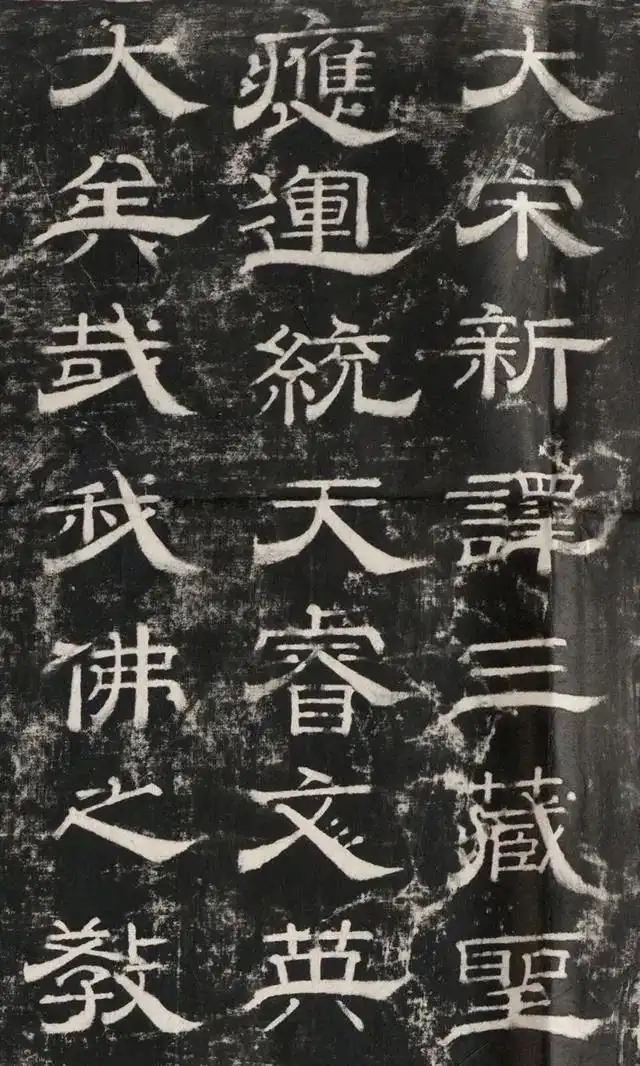 大宋新譯三藏聖
應運統天睿文英
大矣哉我佛之教